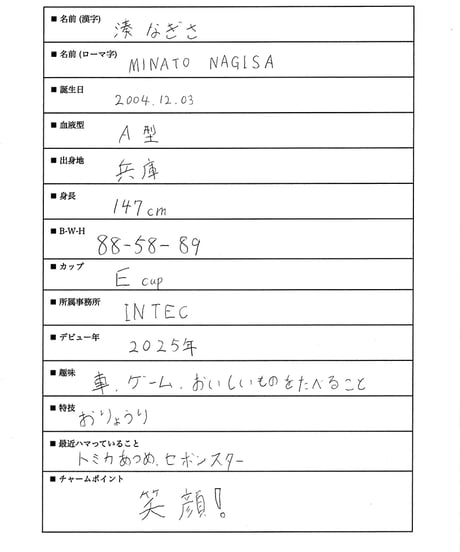 ■ 名前 (漢字)
湊 なぎさ
■ 名前 (ローマ字)
MINATO NAGISA
■ 誕生日
2004.12.03
■ 血液型
A型
■ 出身地
兵庫
■ 身長
147cm
■ B-W-H
88-58-89
■ カップ
E cup
■ 所属事務所
INTEC
■ デビュー年
2025年
■ 趣味
車、ゲーム、おいしいものをたべること
■ 特技
おりょうり
■ 最近ハマっていること
トミカあつめ、セボンスター
■ チャームポイント
笑顔!